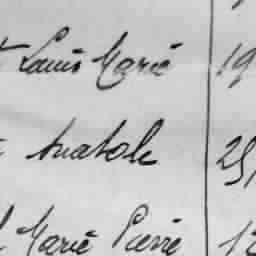 Louis Marie 19
Anatole 25
Marie Pierre 12